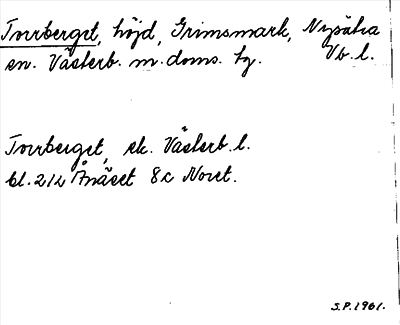 Torrberget, höjd, Grimsmark, Nysätra
en. Västerb. m. doms. tg. Vb. l.
Torrberget, ek. Västerb. l.
bl. 212 Ånäset 8c Noret.
S.P. 1961.